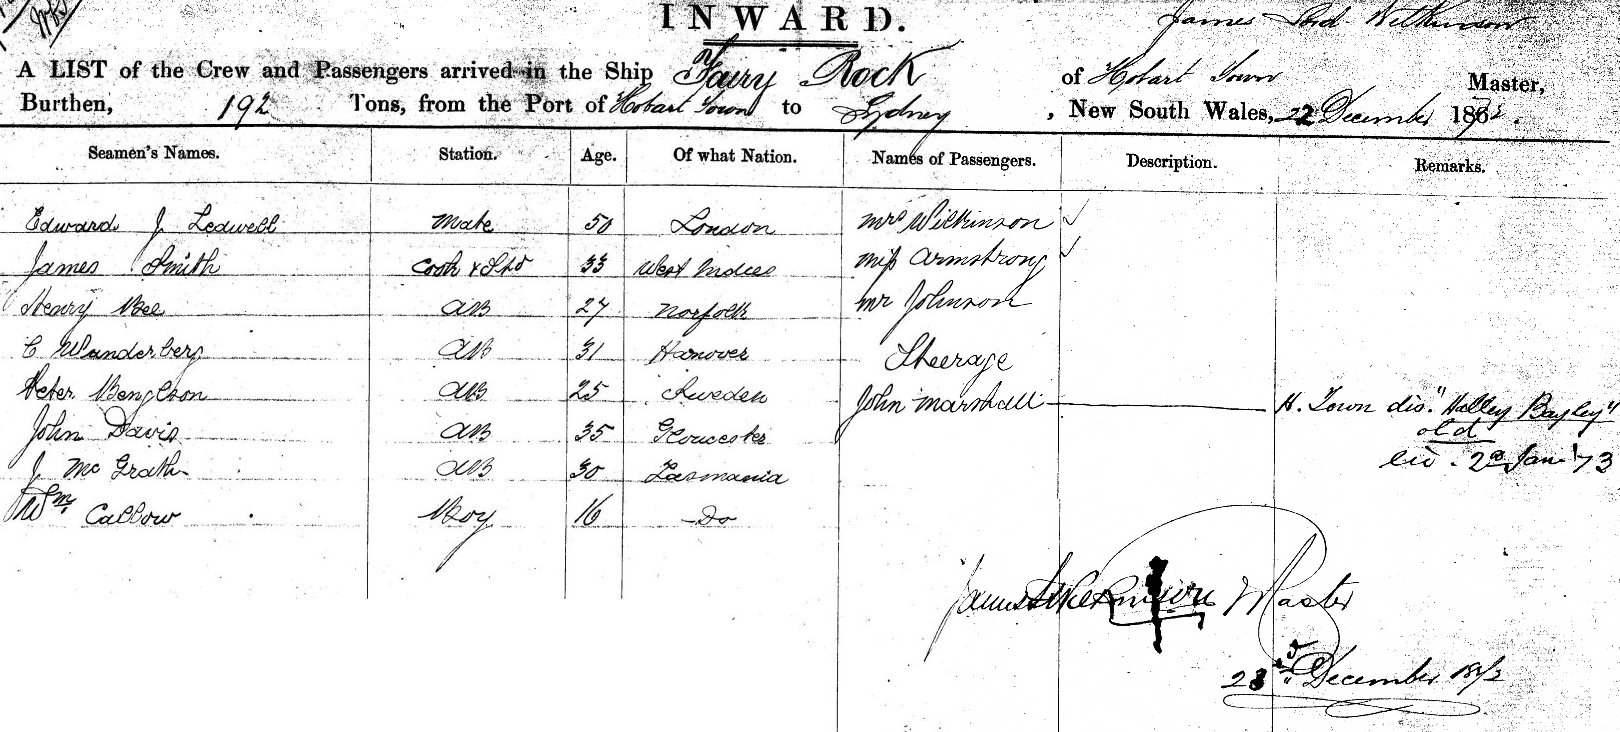 INWARD.
James Wilkinson
A LIST of the Crew and Passengers arrived in the Ship Fairy Rock of Hobart Town Master,
Burthen, 192 Tons, from the Port of Hobart Town to Sydney, New South Wales, 22 December 1872.
Seamen's Names. Station. Age. Of what Nation. Names of Passengers. Description. Remarks.
Edward J Ledwell Mate 50 London Mrs Wilkinson ✓
James Smith Cook & Std 33 West Indies Miss Armstrong ✓
Henry Bee AB 27 Norfolk Mr Johnson
C Wanderberg AB 31 Hanover Steerage
Peter Bengtson AB 25 Sweden John Marshall H. Town dis. "Bayley"
John Davis AB 35 Gloucester old
J McGrath AB 30 Tasmania 2d Jan '73
Wm Calbow Boy 16 Do
James Wilkinson Master
December 1872